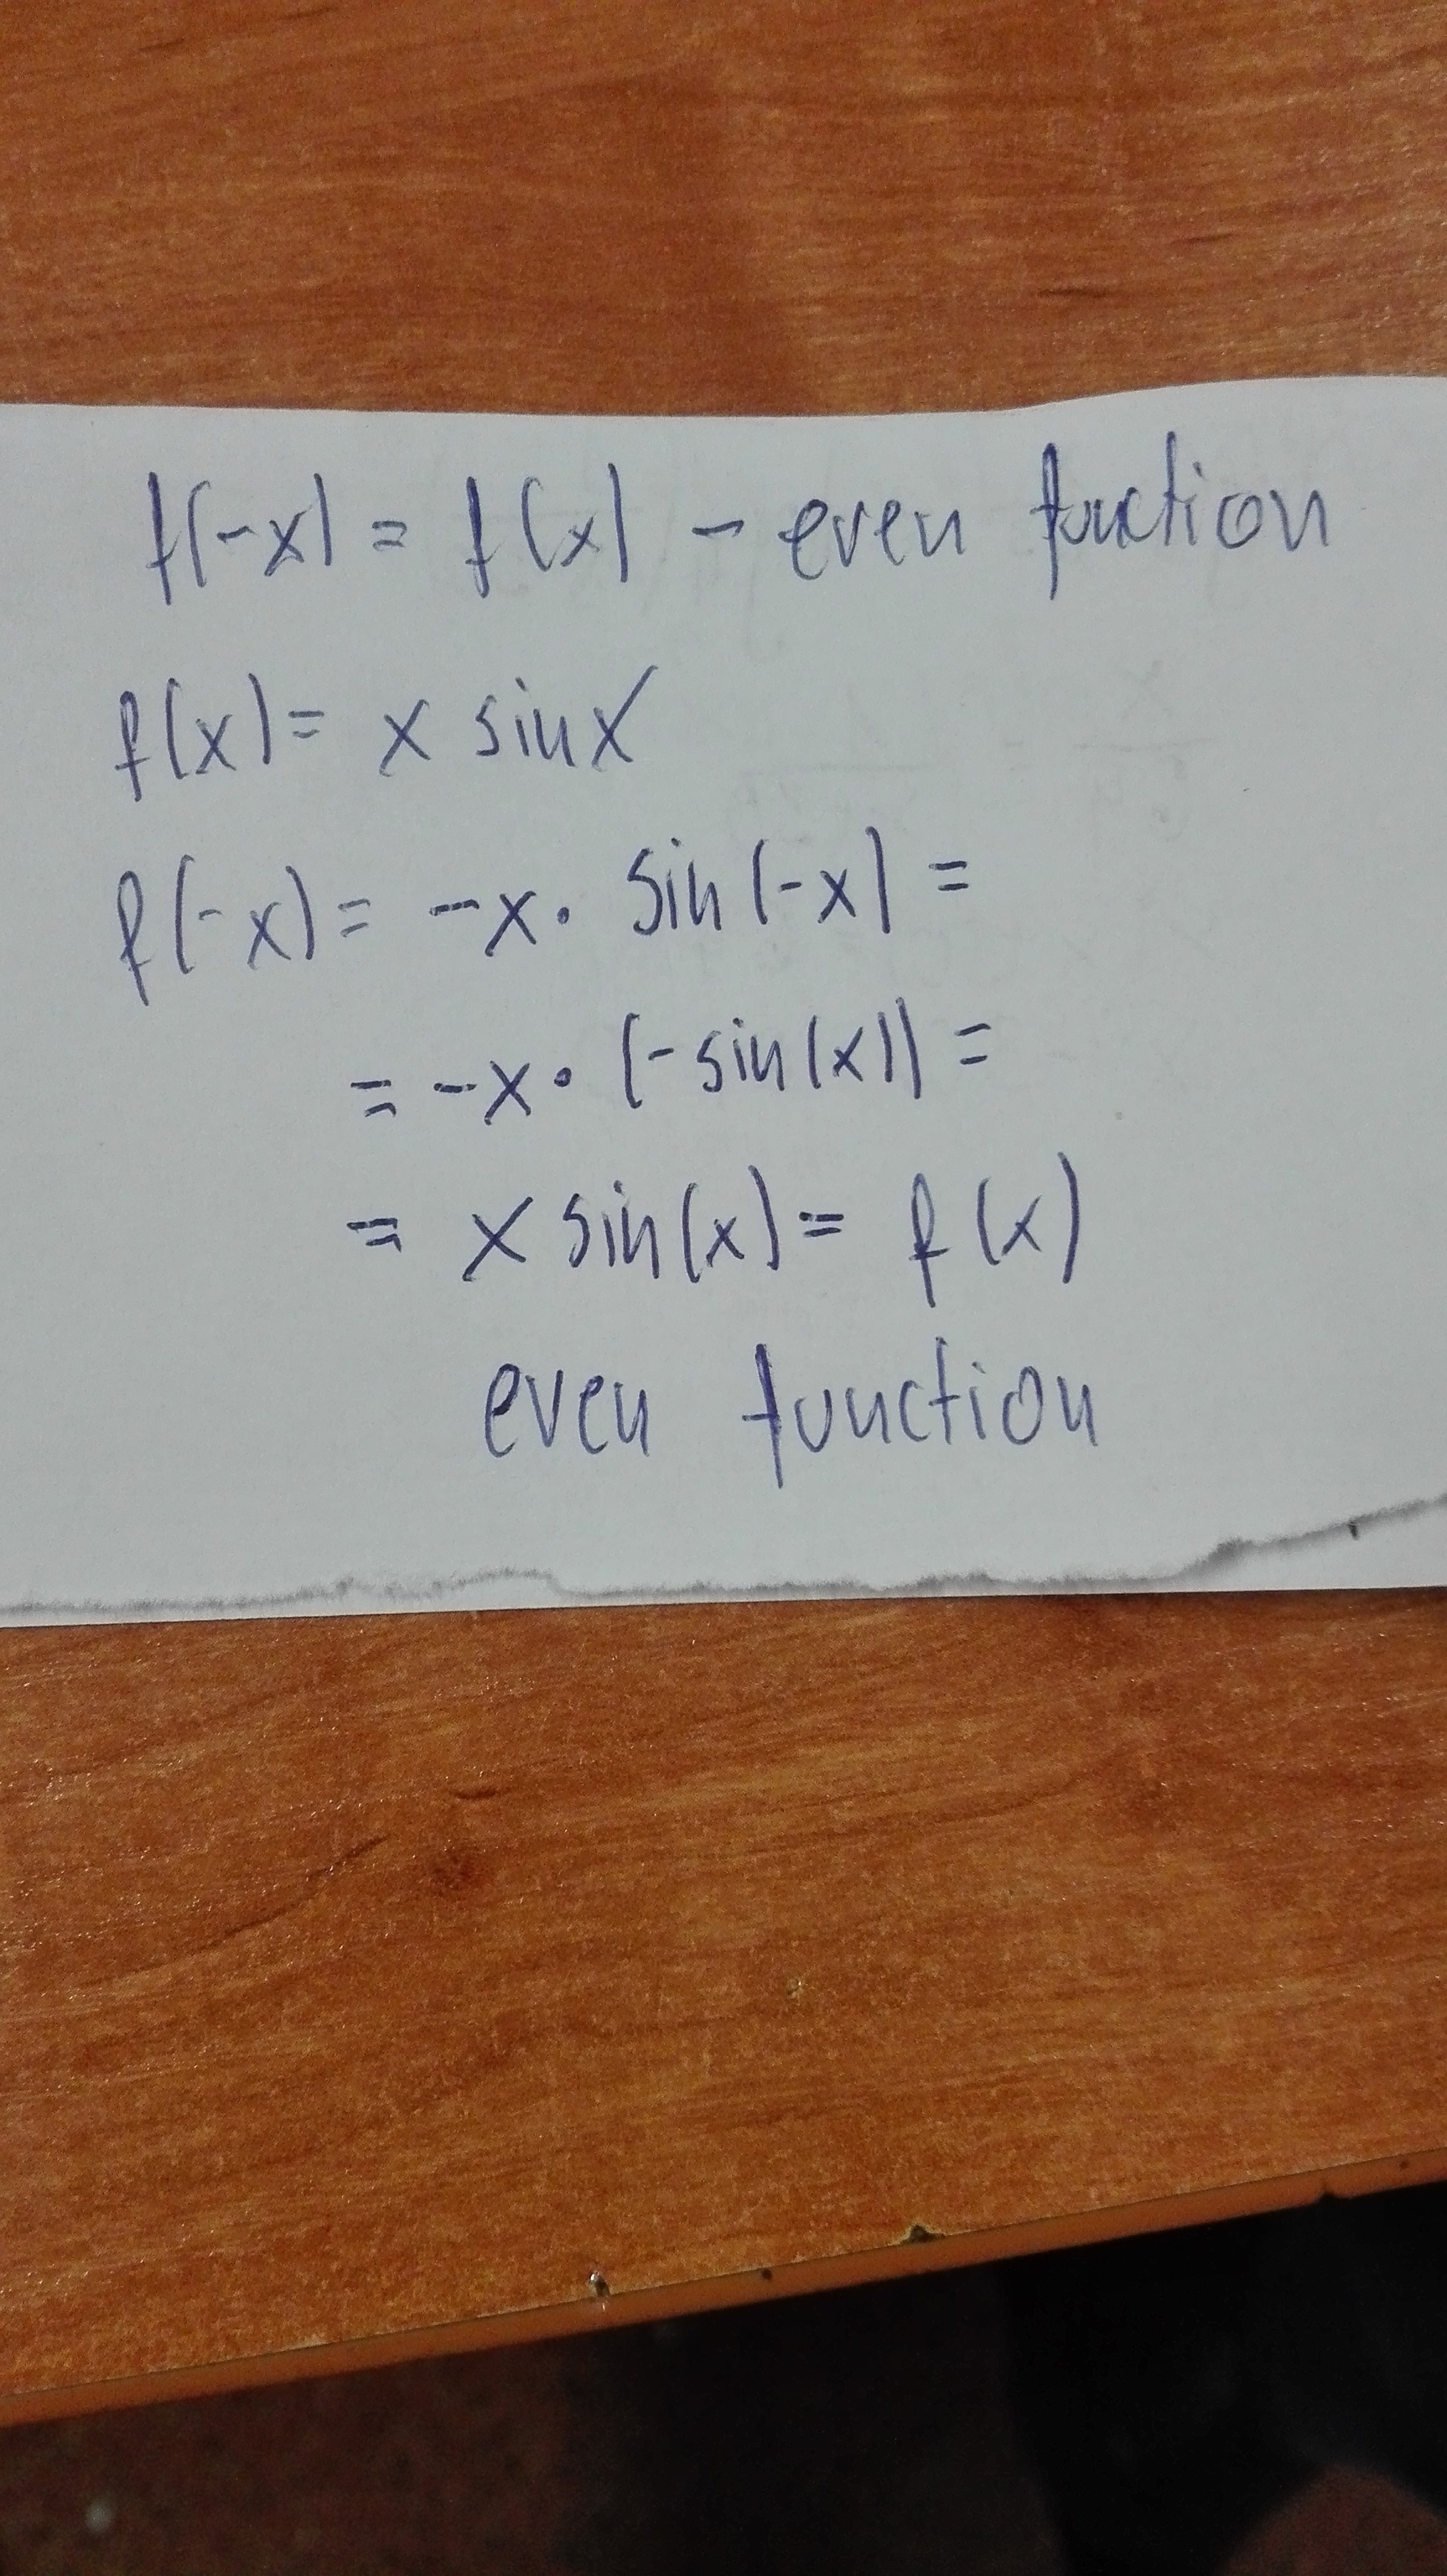 f(-x) = f(x) - even function
f(x) = x sin x
f(-x) = -x · sin(-x) =
= -x · (-sin(x)) =
= x sin(x) = f(x)
even function